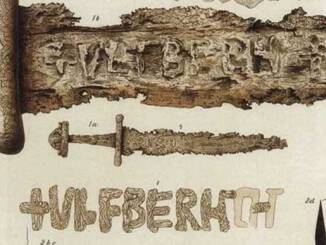 1b
+VLFBERHT
1a
+VLFBERHT+
2d
2bc